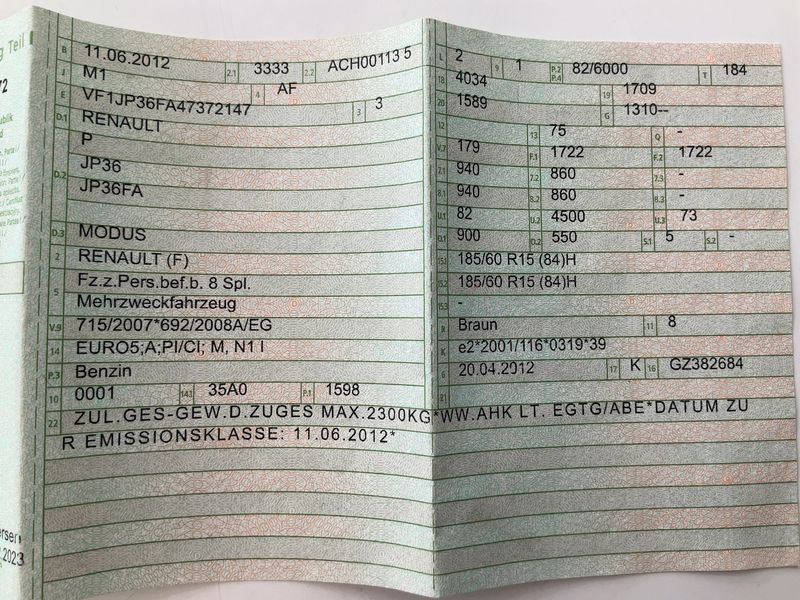 g Teil I
B 11.06.2012 2.1 3333 2.2 ACH00113 5
J M1 4 AF
E VF1JP36FA47372147 3 3
D.1 RENAULT
P
D.2 JP36
JP36FA
D.3 MODUS
2 RENAULT (F)
5 Fz.z.Pers.bef.b. 8 Spl.
Mehrzweckfahrzeug
V.9 715/2007*692/2008A/EG
14 EURO5;A;PI/CI; M, N1 I
P.3 Benzin
10 0001 14.1 35A0 P.1 1598
22 ZUL.GES-GEW.D.ZUGES MAX.2300KG*WW.AHK LT. EGTG/ABE*DATUM ZU
R EMISSIONSKLASSE: 11.06.2012*
L 2 9 1 P.2 P.4 82/6000 T 184
18 4034 19 1709
20 1589 G 1310--
12 13 75 Q -
V.7 179 F.1 1722 F.2 1722
7.1 940 7.2 860 7.3 -
8.1 940 8.2 860 8.3 -
U.1 82 U.2 4500 U.3 73
O.1 900 O.2 550 S.1 5 S.2 -
15.1 185/60 R15 (84)H
15.2 185/60 R15 (84)H
15.3 -
R Braun 11 8
K e2*2001/116*0319*39
6 20.04.2012 17 K 16 GZ382684
21
72
2023